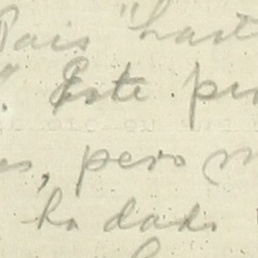 Pais "hasta
". Este pro
es, pero n
ha dado